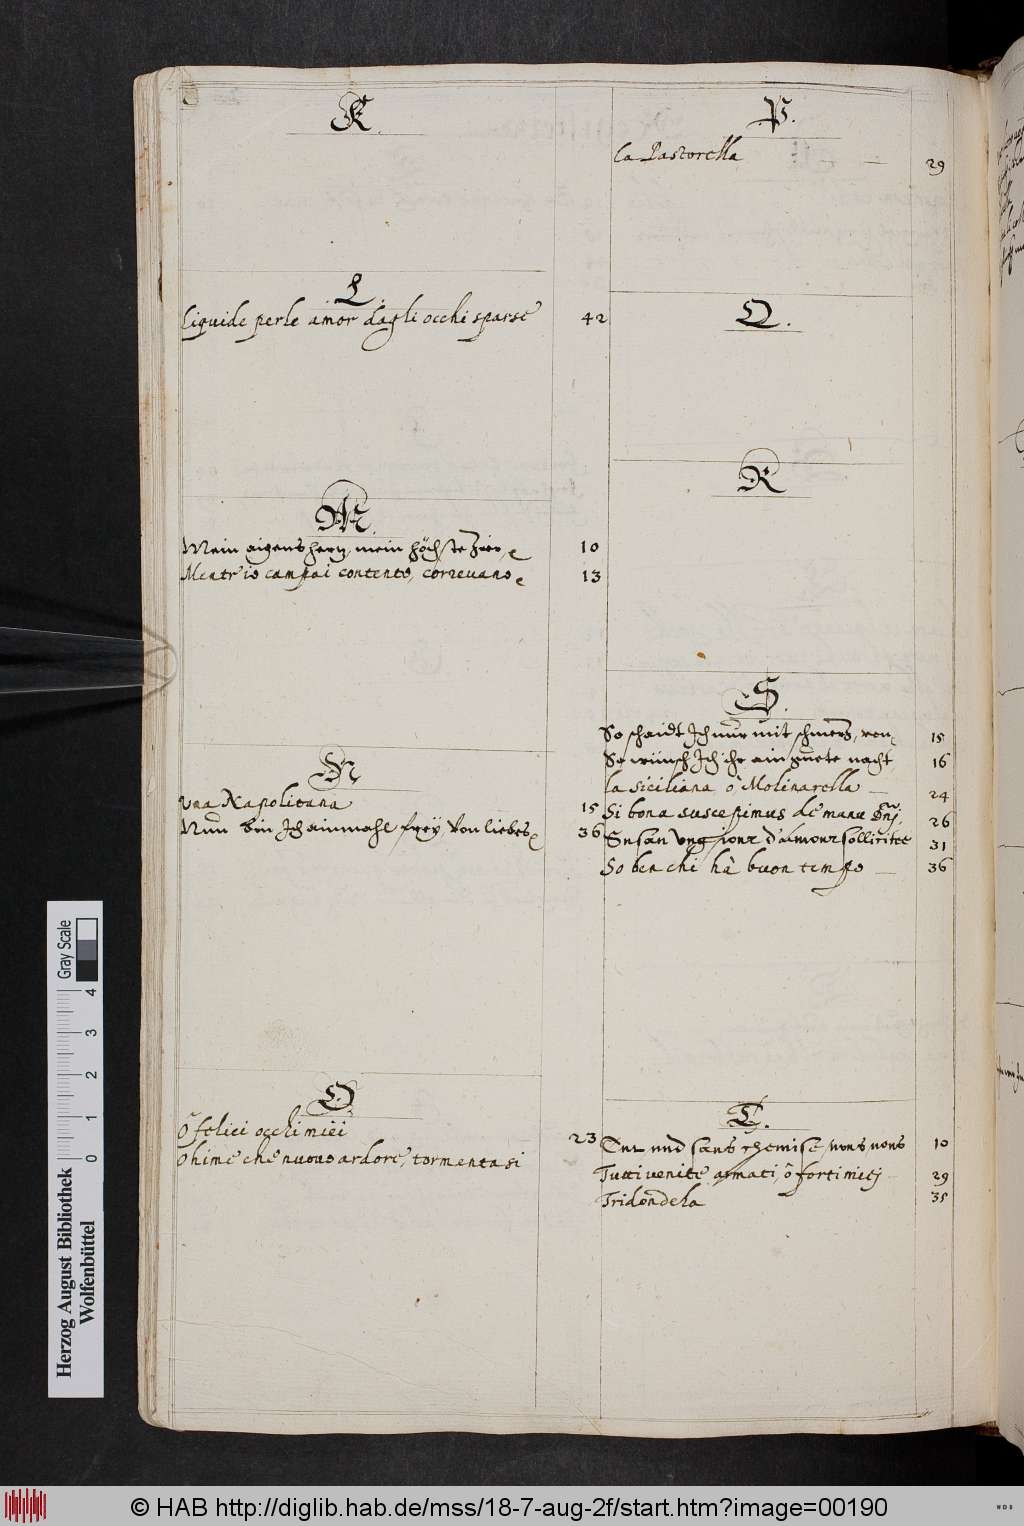 K.
L.
Liquide perle amor dagli occhi sparse 42
M.
Mein aigens herz, mein höchste Zier, 10
Mentr io campai contento, correvano 13
N
Una Napolitana 15
Nun bin Ich ainmahl frey von liebes 36
O
ô felici occhi miei 23
Ohime che nuovo ardore, tormentasi
P.
La Pastorella 29
Q.
R
S.
So schaidt Ich nur mit schmerz, von 15
So wünsch Ich ihr ain guete nacht 16
la siciliana ô Molinarella 24
Si bona suscepimus de manu Dnj, 26
Susan ung iour d'amour sollicitee 31
So ben chi hà buon tempo 36
T.
nud sans chemise, nous nous 10
Tutti venite armati, ô forti mietj 29
Tridondela 35
Gray Scale
0 1 2 3 4
Herzog August Bibliothek
Wolfenbüttel
© HAB http://diglib.hab.de/mss/18-7-aug-2f/start.htm?image=00190
WDB